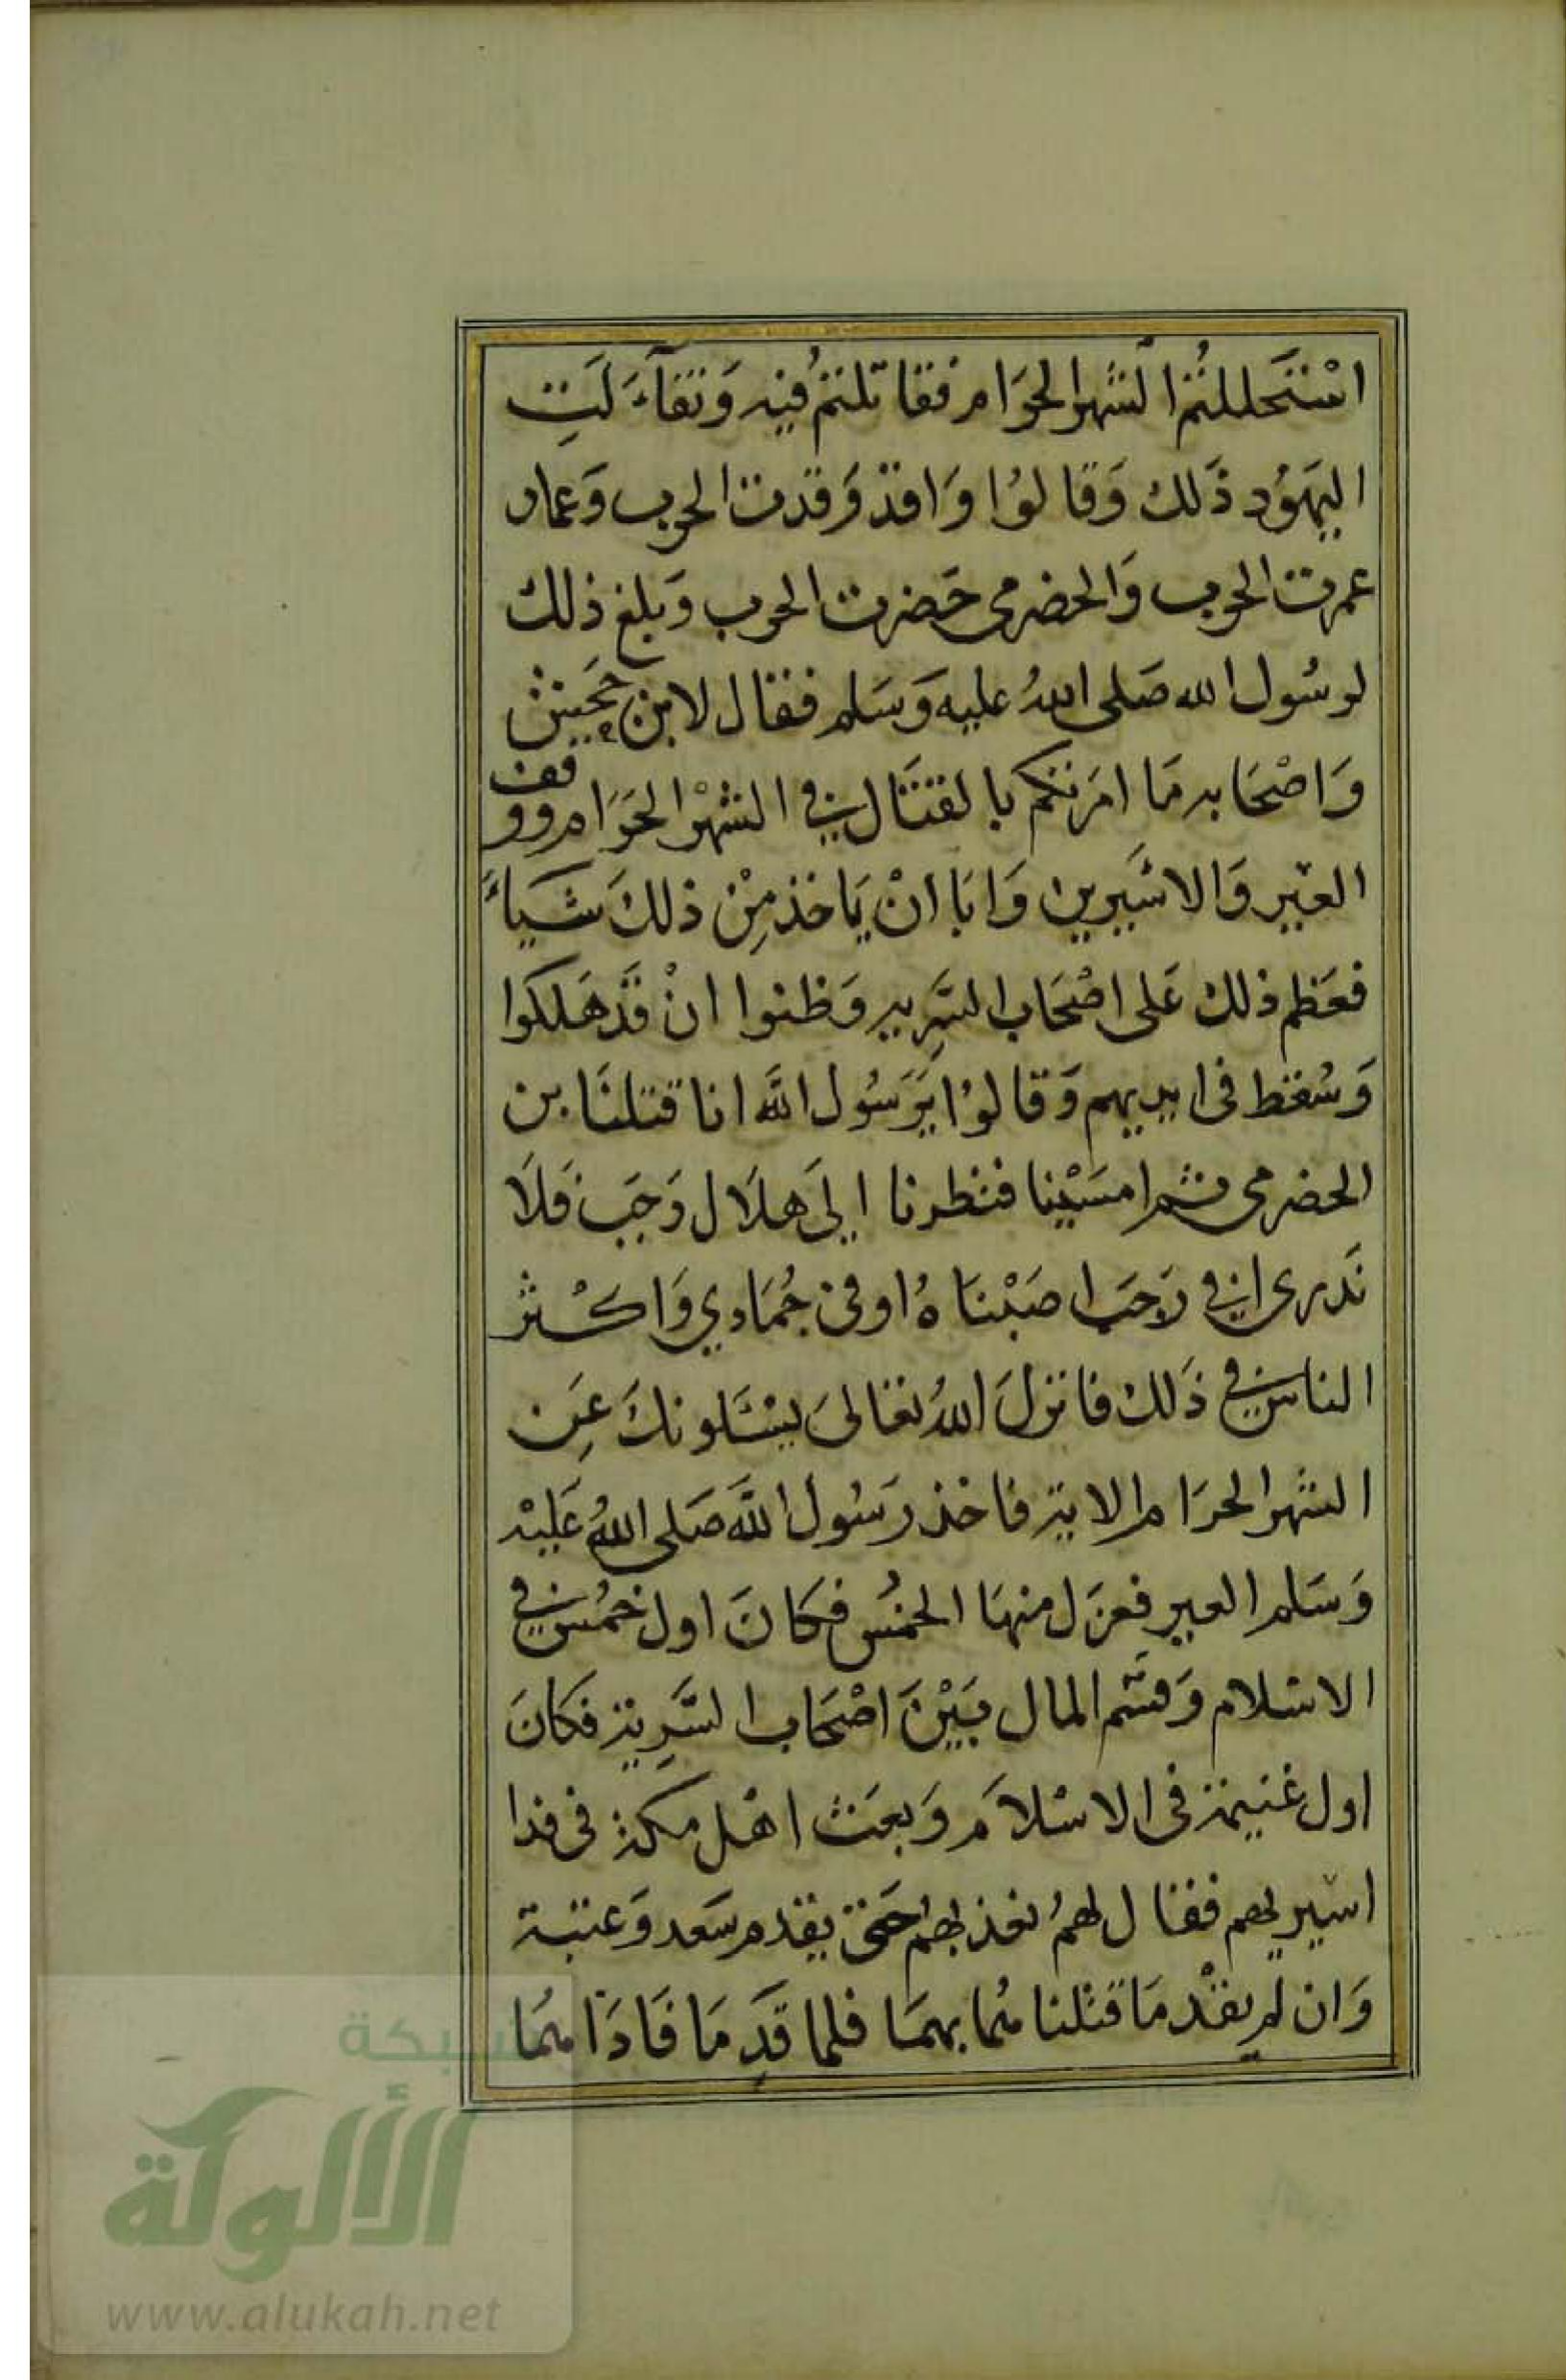 اسْتَحللتُم الشهر الحرَام فقاتلتمُ فيه وَتفآءَ لَتِ
اليهَوُد ذَلك وَقالوُا وَاقد وَقدت الحرب وَعمار
عمرت الحرب وَالحضرمى حَضرت الحرب وَبلغ ذلك
لرسُول الله صَلى اللهُ عليه وَسَلم فقال لابن جحَيش
وَاصْحَابه مَا امَرتكم بالقتَال في الشهْر الحَرَام ووقف
العير وَالاسَيرين وَابَا انْ يَاخذ مِنْ ذلكَ شَياءً
فعَظم ذلك عَلى اصْحَاب السَّرِيه وَظنوا انْ قَد هَلكوا
وَسُقط فى ايديهم وَقالوُا يَرَسُول الله انا قتلنَا بن
الحضرمى ثم امسَيْنا فنظرنا الىَ هلَال رَجَب فَلَا
نَدرى افي رَجَب اصَبْنَاهُ اوفى جُمَادي وَاكْثر
الناس في ذَلك فانزلَ اللهُ تعَالىَ يسْئَلونكَ عَن
الشهر الحرَام الاية فاخذ رَسُول اللهَ صَلى اللهُ عَليْه
وَسَلم العير فعزل منهَا الخمُس فكَانَ اول خمُس في
الاسْلام وَقسَّم المال بَيْنَ اصْحَاب السَّرِية فكَانَ
اول غنيمة فى الاسْلاَم وَبعَث اهْل مكة فى فدا
اسيريهم فقال لهمُ نفذ بهمُ حَتى يقدم سَعد وَعتبة
وَان لم يقدْمَا قتلنا هُما بهمَا فلما قدَمَا فَادَا همُا
شبكة
الألوكة
www.alukah.net